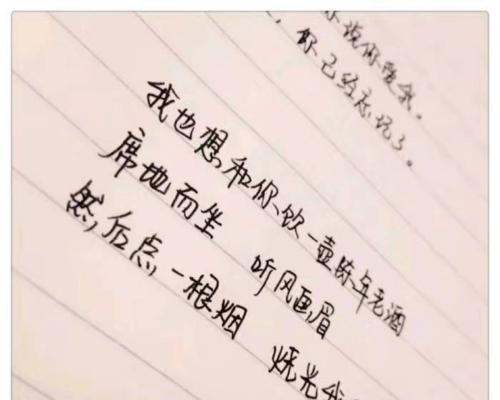 说你爱我。
，你已经忘记了。
我也想和你饮一壶陈年老酒
席地而坐 听风画眉
然后点一根烟 烧光我